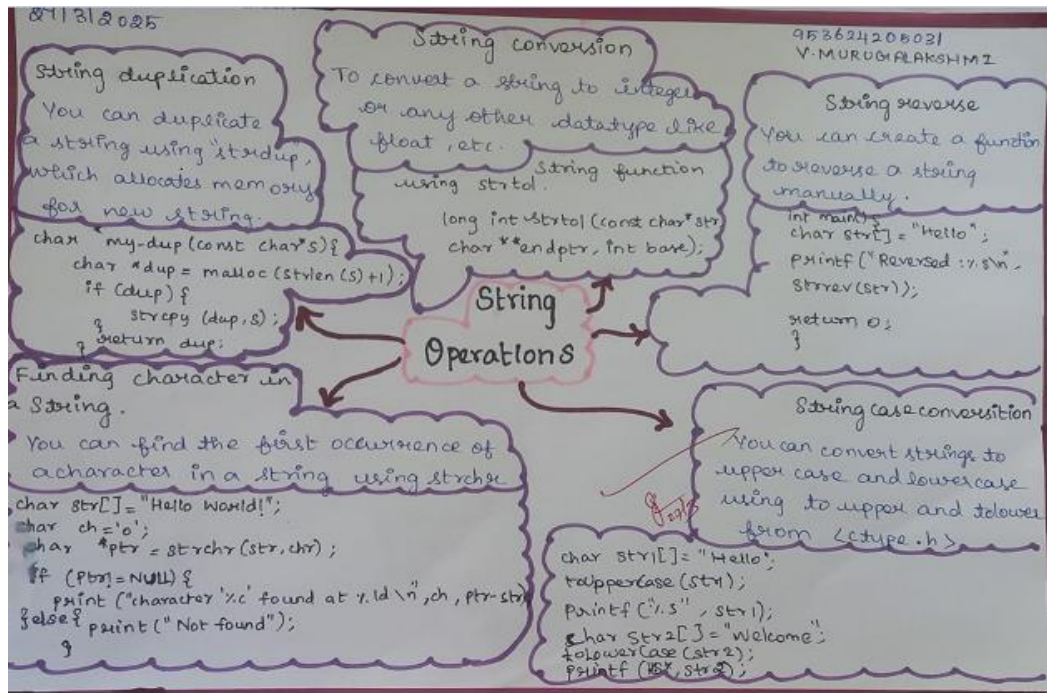 27/3/2025
953624205031
V.MURUGALAKSHMI
String duplication
You can duplicate
a string using "strdup",
which allocates memory
for new string.
char *my-dup (const char*s){
char *dup = malloc (strlen (s)+1);
if (dup) {
strcpy (dup,s);
}
} return dup;
String conversion
To convert a string to integer
or any other datatype like
float, etc.
String function
using strtol.
long int strtol (const char*str
char **endptr, int base);
String reverse
You can create a function
to reverse a string
manually.
int main() {
char str[] = "Hello";
printf ("Reversed :%s\n",
strrev(str));
return 0;
}
String
Operations
Finding character in
a String.
You can find the first occurrence of
a character in a string using strchr
char str[] = "Hello World!";
char ch='o';
char *ptr = strchr (str, chr);
if (ptr!= NULL) {
print ("character '%c' found at %ld \n", ch, ptr-str)
}else{ print ("Not found");
}
String case conversition
You can convert strings to
upper case and lowercase
using to upper and tolower
from <ctype.h>
27/3
char str1[] = "Hello";
toUppercase (str1);
printf ("%s", str1);
char str2[] = "Welcome";
toLowerCase (str2);
printf ( , str2);